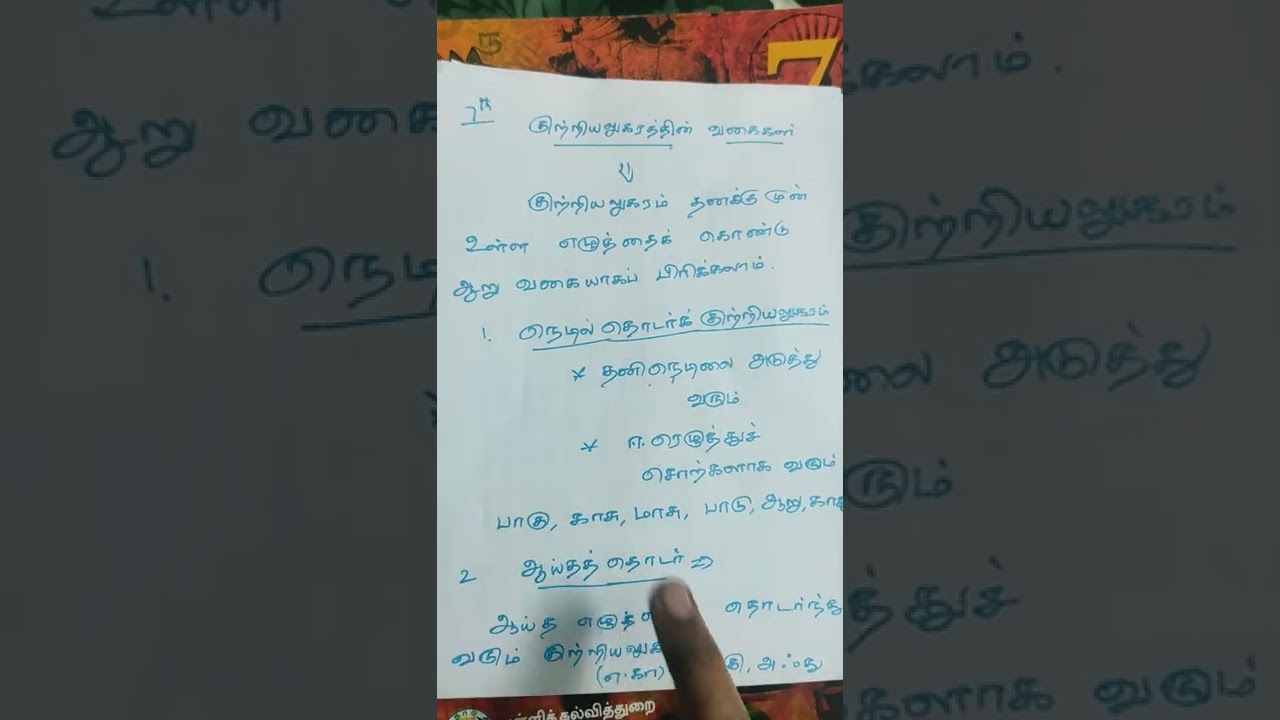 7
7th
குற்றியலுகரத்தின் வகைகள்
குற்றியலுகரம் தனக்கு முன்
உள்ள எழுத்தைக் கொண்டு
ஆறு வகையாகப் பிரிக்கலாம்.
1. நெடில் தொடர்க் குற்றியலுகரம்
* தனிநெடிலை அடுத்து
வரும்
* ஈ.ரெழுத்துச்
சொற்களாக வரும்
பாகு, காசு, மாசு, பாடு, ஆறு,
2 ஆய்தத் தொடர் ⇒
ஆய்த தொடர்ந்து
வரும்
(எ.கா) அஃது